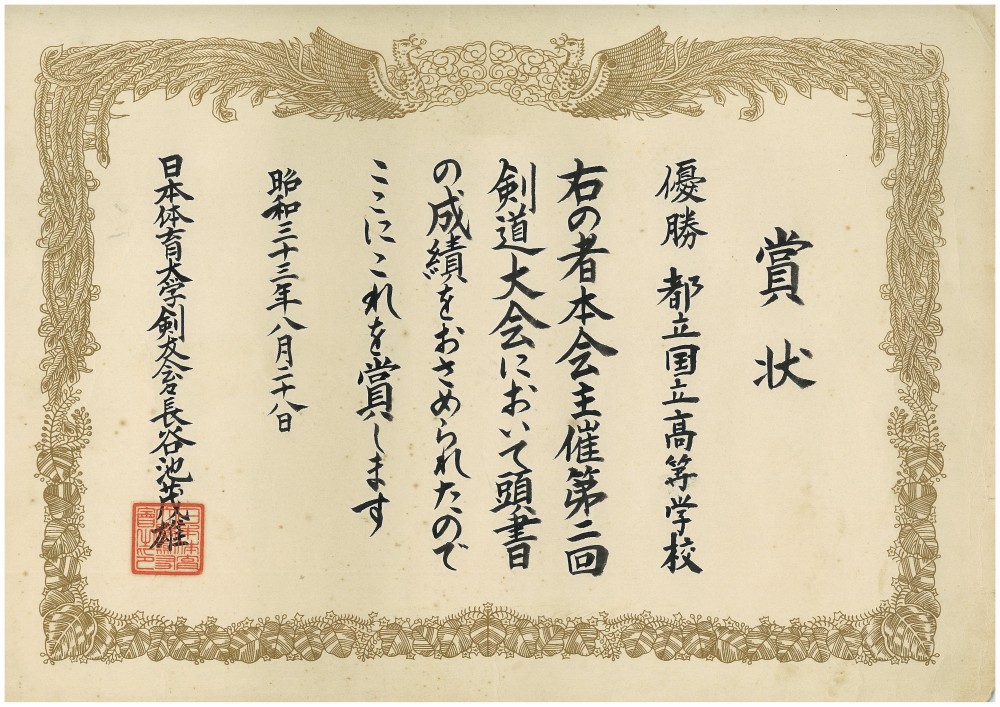 賞状
優勝 都立国立高等学校
右の者本会主催第二回
剣道大会において頭書
の成績をおさめられたので
ここにこれを賞します
昭和三十三年八月二十八日
日本体育大学剣友会々長谷池茂雄